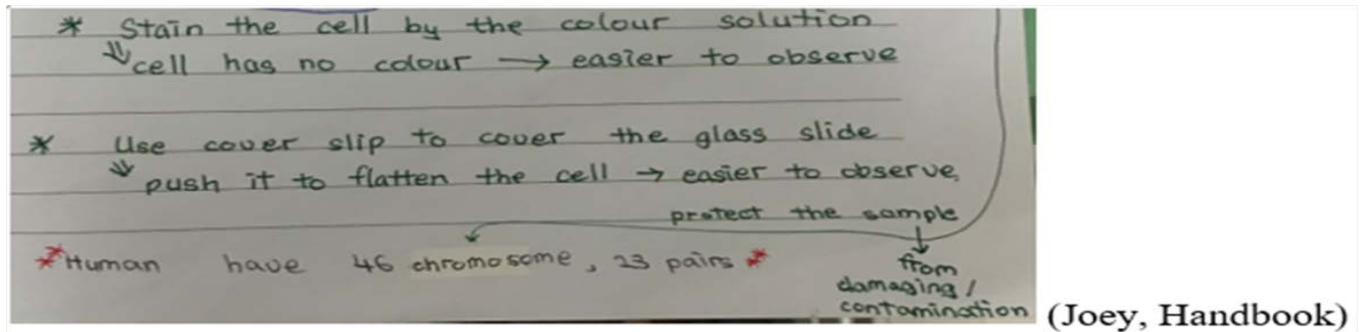 * Stain the cell by the colour solution
⇓ cell has no colour → easier to observe
* Use cover slip to cover the glass slide
⇓ push it to flatten the cell → easier to observe,
protect the sample
↓
from
damaging /
contamination
*Human have 46 chromosome, 23 pairs*
(Joey, Handbook)